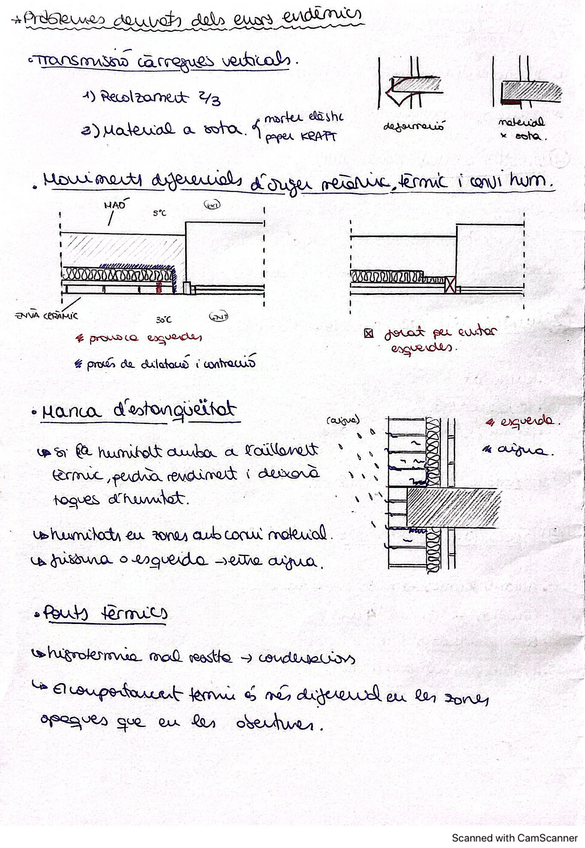 * Problemes derivats dels errors endèmics
• Transmissió càrregues verticals.
1) Recolzament 2/3
2) Material a sota. { morter elàstic
paper KRAFT
deformació
material
x sota.
• Moviments diferencials d'origen mecànic, tèrmic i canvi hum.
MAÓ
5ºC
EXT
ENVÀ CERÀMIC
30ºC
INT
* provoca esquerdes
* procés de dilatació i contracció
junt per evitar
esquerdes.
• Manca d'estanquëitat
(aigua)
* esquerda.
* aigua.
↳ Si la humitat arriba a l'aïllament
tèrmic, perdrà rendiment i deixarà
taques d'humitat.
↳ humitats en zones amb canvi material.
↳ fissura o esquerda → entra aigua.
• Ponts tèrmics
↳ higrotermia mal resolta → condensacions
↳ El comportament tèrmic és més diferencial en les zones
opaques que en les obertures.
Scanned with CamScanner